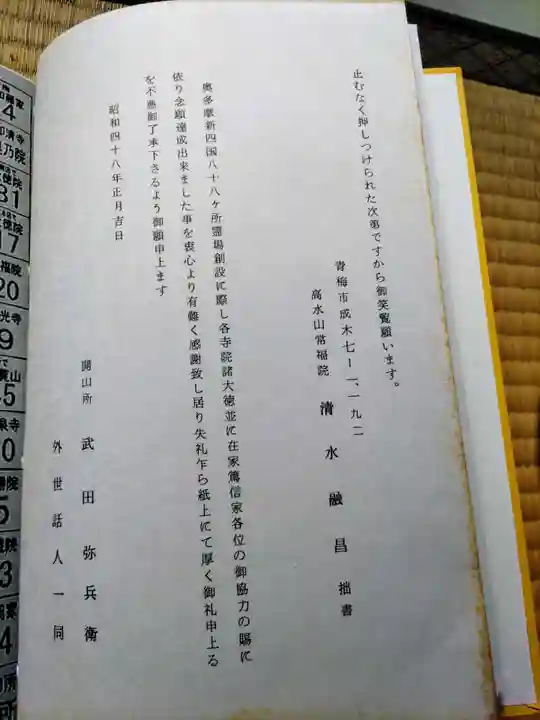 止むなく押しつけられた次第ですから御笑覧願います。
青梅市成木七ー一、一九二
高水山常福院 清水融昌拙書
奥多摩新四国八十八ヶ所霊場創設に際し各寺院諸大徳並に在家篤信家各位の御協力の賜に
依り念願達成出来ました事を衷心より有難く感謝致し居り失礼乍ら紙上にて厚く御礼申上る
を不悪御了承下さるよう御願申上ます
昭和四十八年正月吉日
開山所 武田弥兵衛
外世話人一同
4
乃院
31
17
福院
20
光寺
9
45
泉寺
0
院
5
院
3
4
所